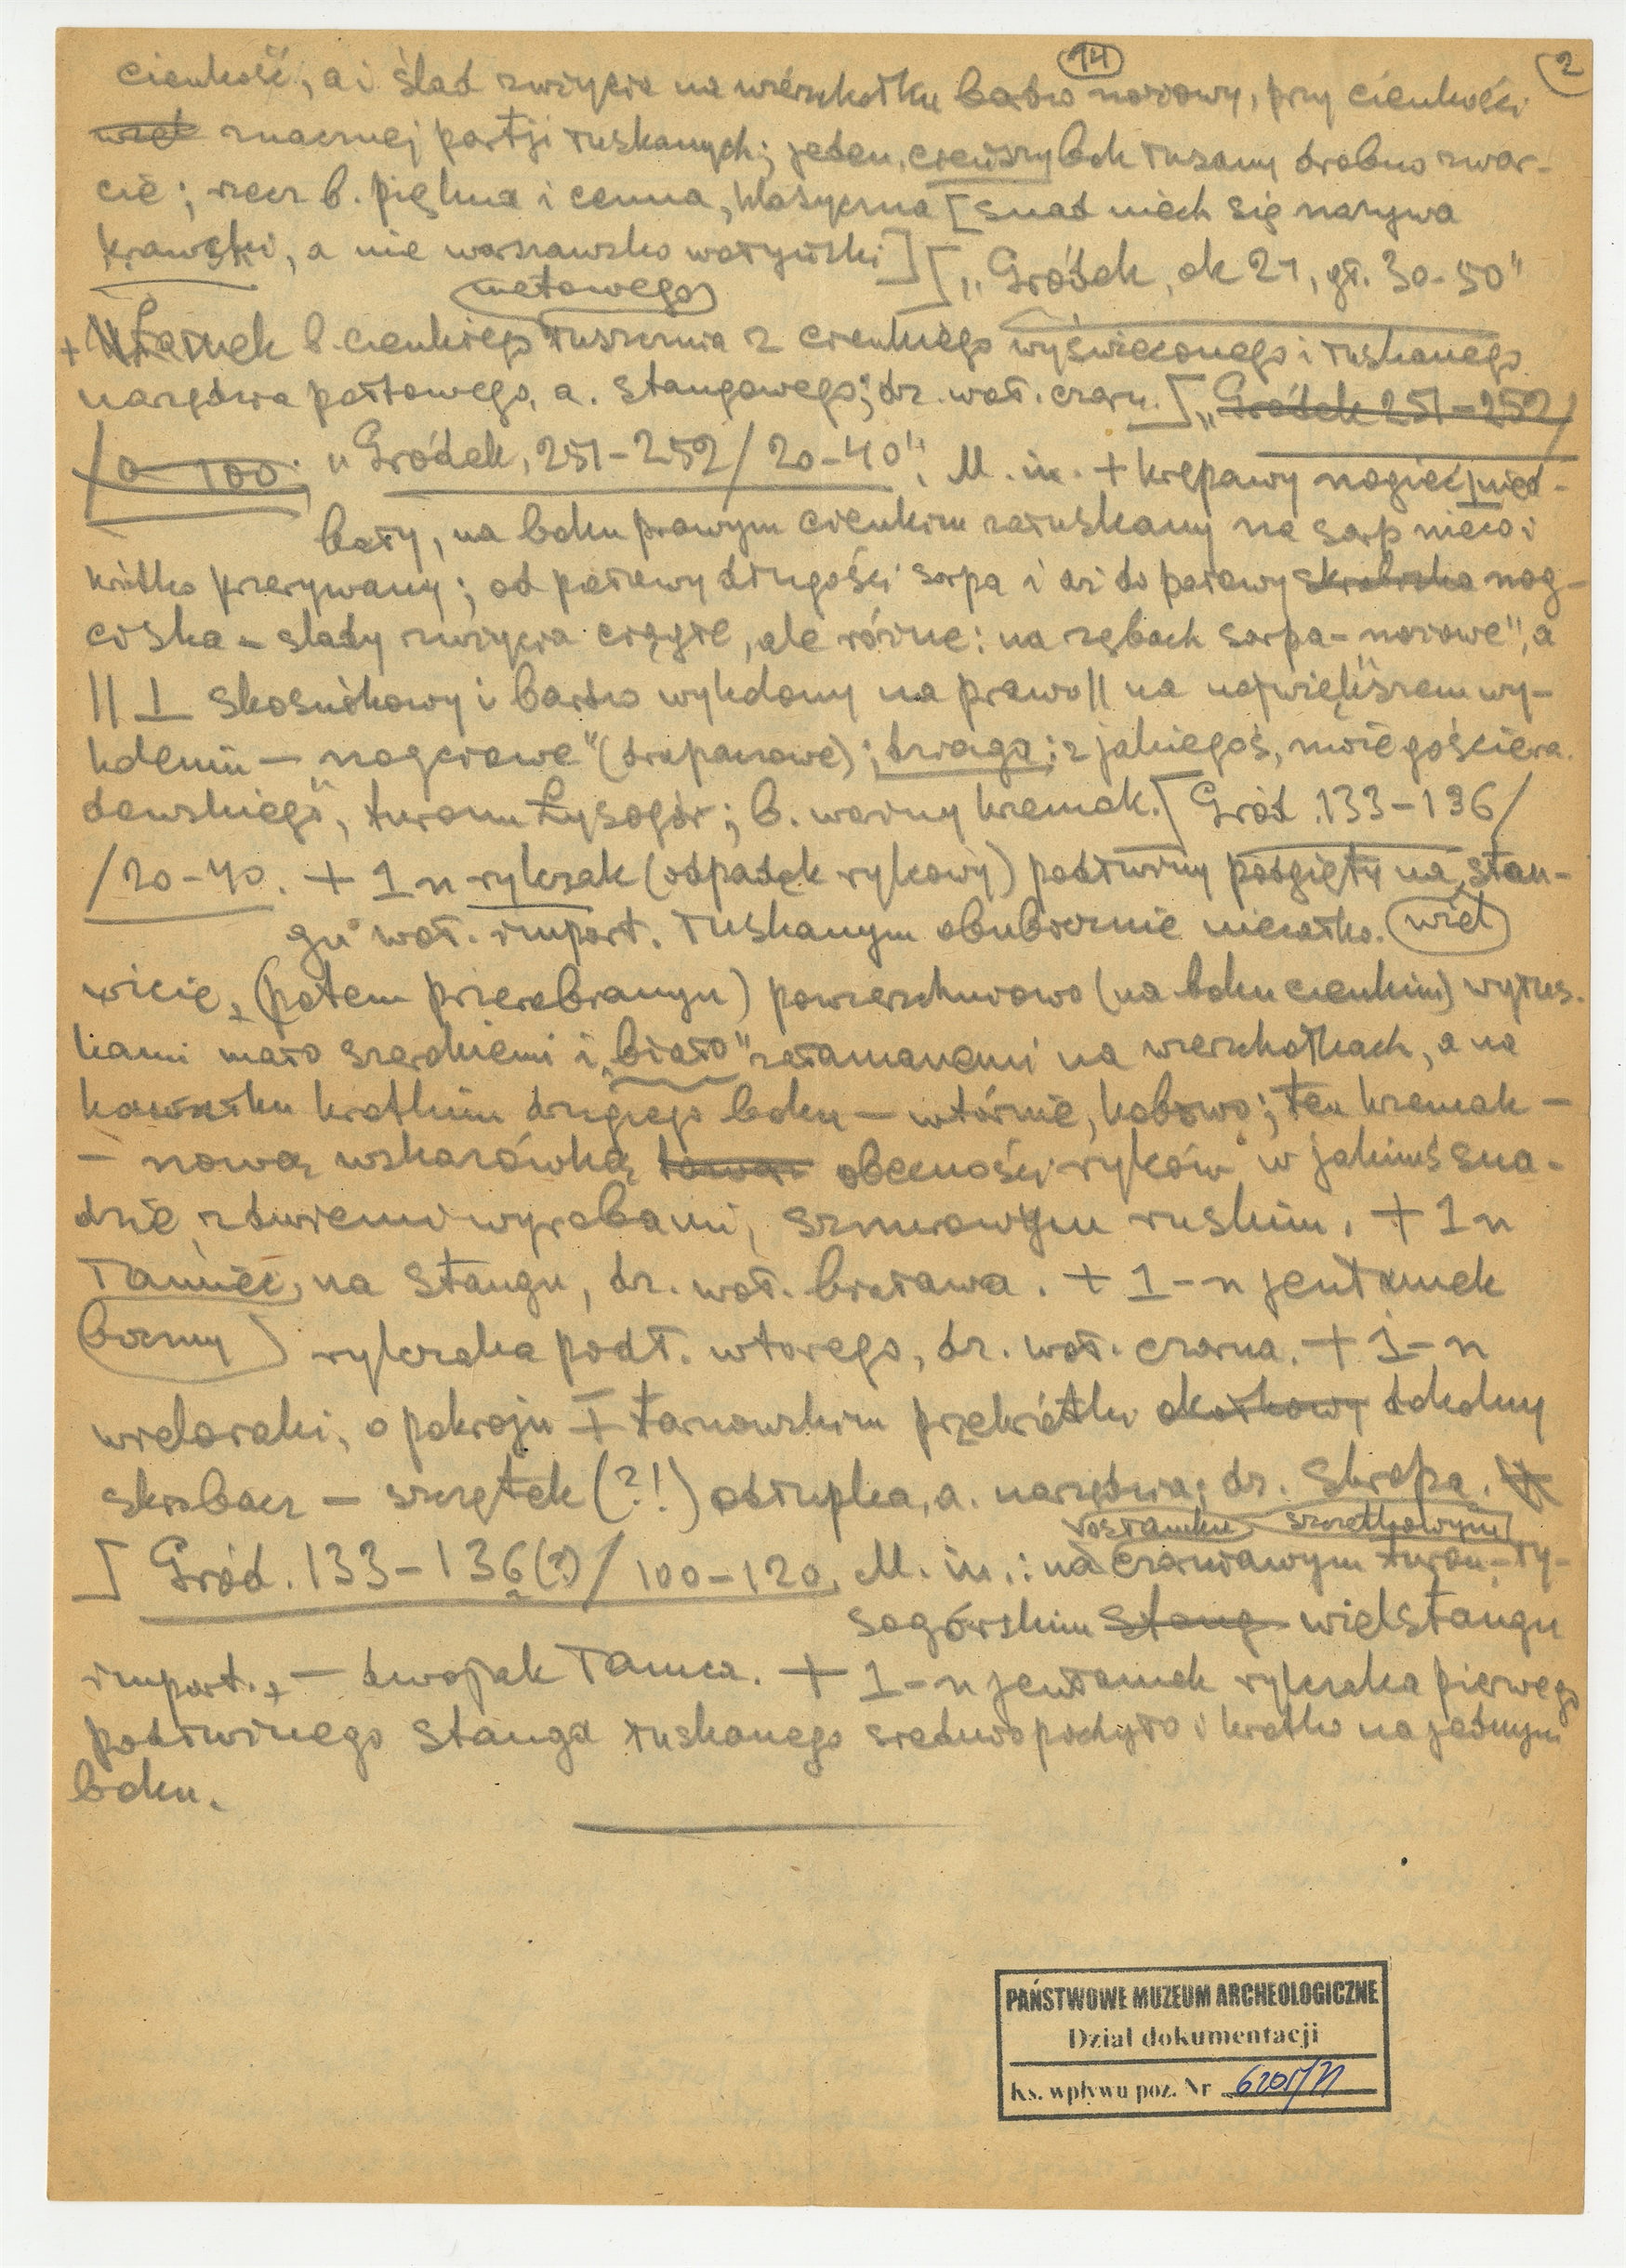 14
2
cienkość, a i ślad zużycia na wierzchołku bardzo nożowy, przy cienkości
znacznej partji łuskanych; jeden, cieńszy bok łuzany drobno zwar-
cie; rzecz b. piękna i cenna, klasyczna [snad niech się nazywa
krawski, a nie warszawsko wołyński] [„Gródek, ok 21, gł. 30-50"
metowego
+ b. cienkiego łuszcznia z cienkiego wyświeconego i łuskanego
narzędzia połtowego, a. stangowego; dz. woł. czarn. [„Gródek 251-252/
/0-100; „Gródek, 251-252/20-40". M. in. + krępawy nogieć nied-
bały, na boku prawym cienkim załuskany na sarp nieco i
krótko przerywany; od połowy długości sarpa i aż do połowy skrobiska nog-
ciska - ślady zużycia ciągłe, ale różne: na zębach sarpa - „nożowe", a
|| ⊥ skośnikowy i bardzo wykdony na prawo || na największem wy-
kdeniu — nogciowe" (drapaczowe); dziaga; z jakiegoś,
dawskiego", turonu Łysogór; b. ważny kremak. [Gród. 133-136/
/20-40. + 1 n rylczak (odpadek rylcowy) podłużny podgięty na „stan-
gu" woł. import. łuskanym obubocznie niecałko. wiel
wicie, (potem przerabianym) powierzchniowo (na boku cienkim) wyłus-
kami mało szerokiemi i „biało" załamanemi na wierzchołkach, a na
kawałku krótkim drugiego boku — wtórnie, kobowo; ten kremak —
— nową wskazówką obecności rylców w jakimś sna-
dzie z dwiemi wyrobami, sznurowym ruskim. + 1 n
łamiec, na stangu, dz. woł. biaława. + 1-n jentamek
boczny rylczaka podł. wtorego, dz. woł. czarna. + 1-n
wieloraki, o pokroju ± tarnowskim przekrótki okołkowy dokolny
skrobacz — szczętek (?!) odłupka, a. narzędzia; dz. Skropa.
[Gród. 133-136(?)/100-120. M. in.: na czarniawym turon.-Ły-
łostamku szczetkowym
sogórskim stang wielstangu
import., — dwojak łamca. + 1-n jentamek rylczaka pierwego
podłużnego stanga łuskanego średnio pochyło i krótko na jednym
boku.
PAŃSTWOWE MUZEUM ARCHEOLOGICZNE
Dział dokumentacji
Ks. wpływu poz. Nr 6205/71